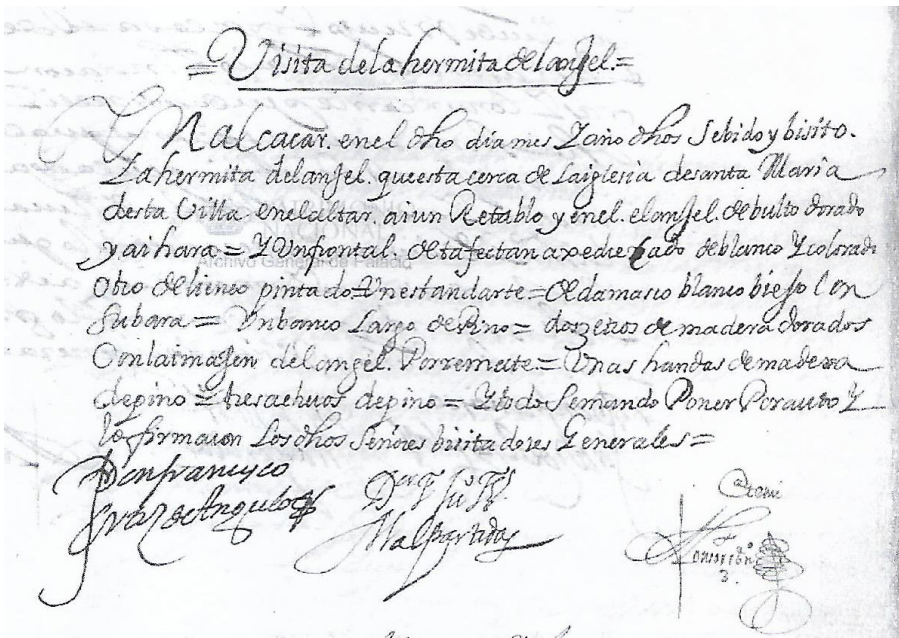 = Visita de la hermita del anjel =
En alcaçar. en el dho dia mes Y año dhos Se bido y bisito.
La hermita del anjel. que esta cerca de La iglesia de santa Maria
desta Villa. en el altar. ai un Retablo y en el. el anjel. de bulto dorado
y ai hara = Y Un frontal. de tafectan axedreçado de blanco Y colorado
Archivo General de Palacio
Otro de lienço pintado = Un estandarte = de damasco blanco biejo con
Su bara = Un banco Largo de Pino = dos zetros de madera dorados
Con la imajen del angel. Por remate = Unas handas de madera
de pino = tres achuos de pino = Y todo Se mando Poner Por auto Y
lo firmaron Los dhos Señores bisitadores Generales =
Don francisco
de Angulo
Malpartida